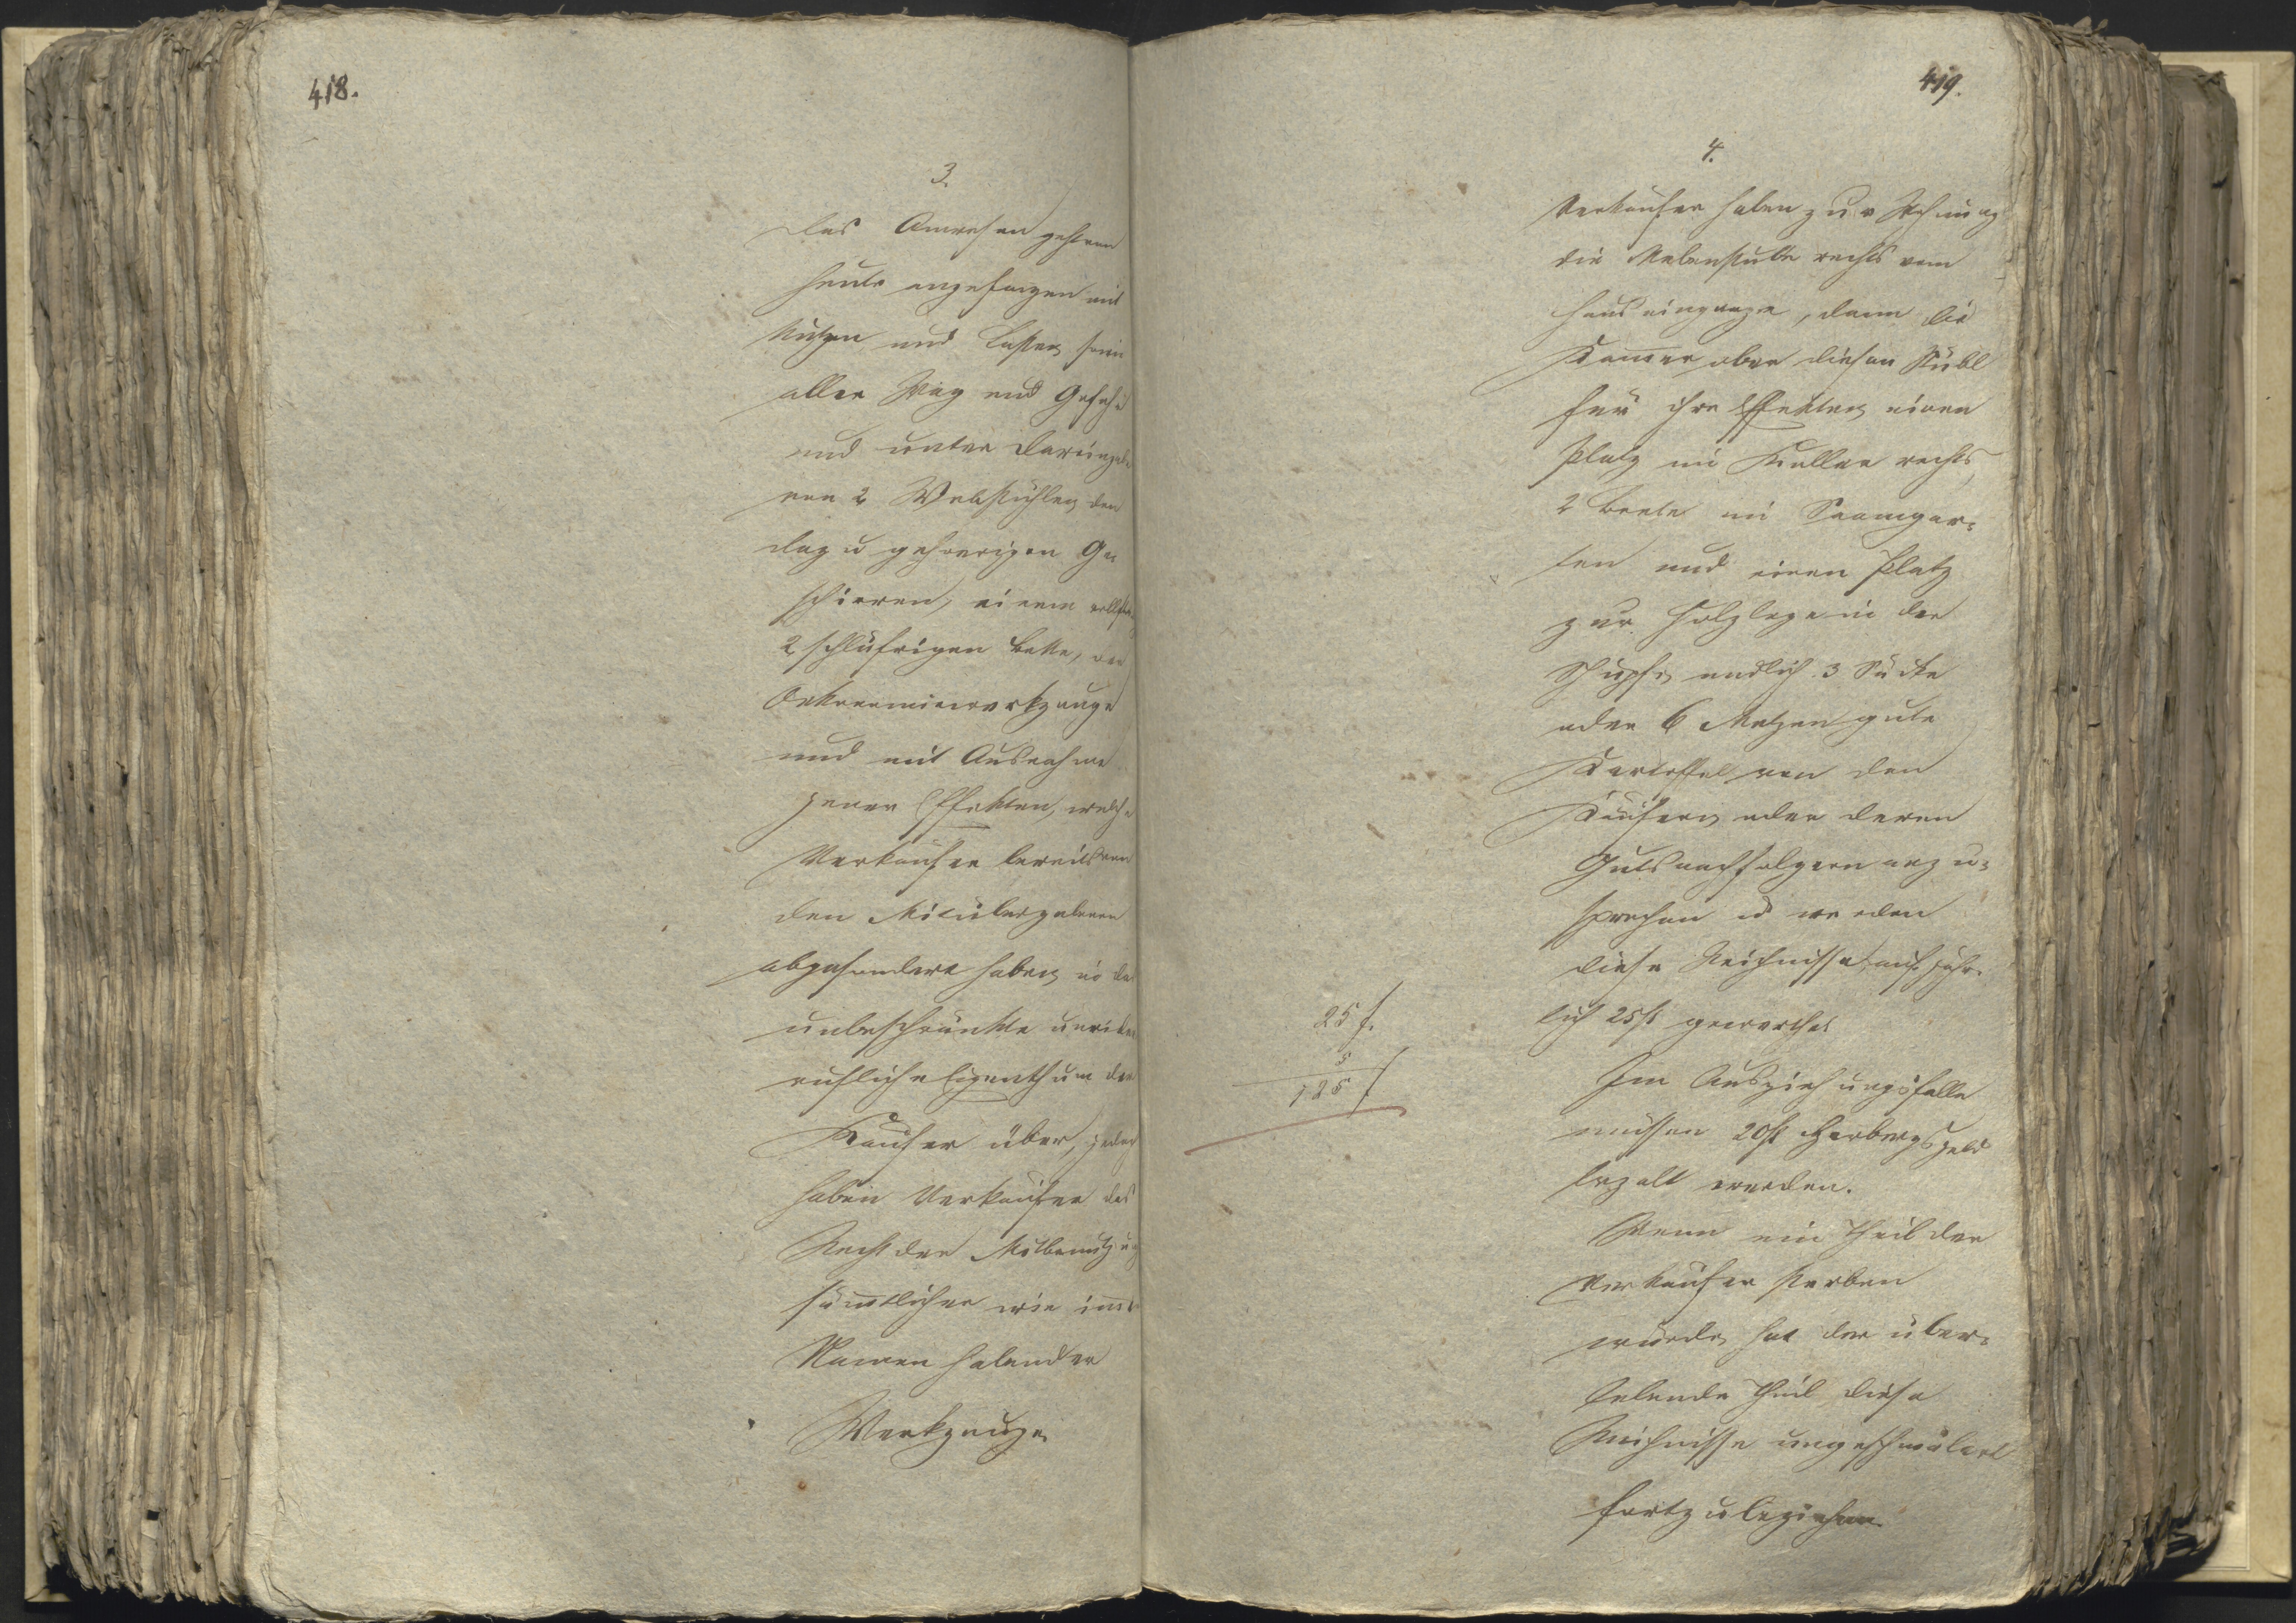 418.
3.
Das Anwesen gehen
heute angefangen mit
Nutzen und Lasten sowie
aller Wag und Gefahr
und unter Dareingabe
von 2 Webstühlen den
dazu gehoerigen Ge
schirren, einem
2 schläfrigen Bette, der
Oekonomiewerkzeuge
und mit Ausnahme
jener Effekten, welche
Verkäufer bereits von
den Mitübergebenen
abgesondert haben, in das
unbeschränkte unwider
rufliche Eigenthum der
Käufer über, jedoch
haben Verkäufer das
Recht der Mitbenutzung
säm̄tlicher wie im̄er
Namen habender
Werkzeuge.
419.
4.
Verkäufer haben zur Wohnung
die Nebenstube rechts vom
Hauseingange, dann die
Kam̄er ober diesen Stübl
für ihre Effekten, einen
Platz im Keller rechts,
2 Beete im Baumgar=
ten und einen Platz
zur Holzlege in der
Schupfe, endlich 3 Säcke
oder 6 Metzen gute
Kartoffel von den
Käufern oder deren
Gutsnachfolgern anzu=
sprechen u werden
diese Reichnisse auf jähr=
lich 25 fl gewerthet
25 f.
5
125 f
Im Ausziehungsfalle
müssen 20 fl Herbergsgeld
bezalt werden.
Wenn ein Theil der
Verkäufer sterben
würde, hat der über=
lebende Theil diese
Reichnisse ungeschmälert
fortzubeziehen.